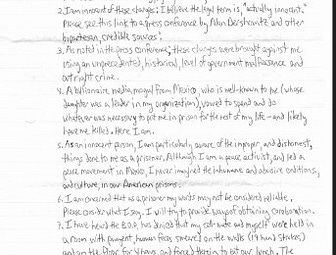 2. I am innocent of these charges; I believe the legal term is, "actually innocent."
Please see this link to a press conference by Alan Dershowitz and other
bipartisan, credible sources.
3. As noted in the press conference, these charges were brought against me
using an unprecedented, historical, level of government malfeasance and
outright crime.
4. A billionaire media mogul from Mexico, who is well-known to me (whose
daughter was a leader in my organization), vowed to spend and do
whatever was necessary to put me in prison for the rest of my life - and likely
have me killed. Here I am.
5. As an innocent person, I am particularly aware of the improper, and dishonest,
things done to me as a prisoner. Although I am a peace activist, and led a
peace movement in Mexico, I never imagined the inhumane and abusive conditions,
and culture, in our American prisons.
6. I am concerned that as a prisoner my words may not be considered reliable.
Please consider what I say. I will try to provide ways of obtaining corroboration.
7. I have heard the B.O.P. has denied that my cell-mate and myself were held in
a room with pungent, human feces smeared on the walls (19 hand strokes)
and on the floor for 4 hours and forced therein to eat our lunch. The